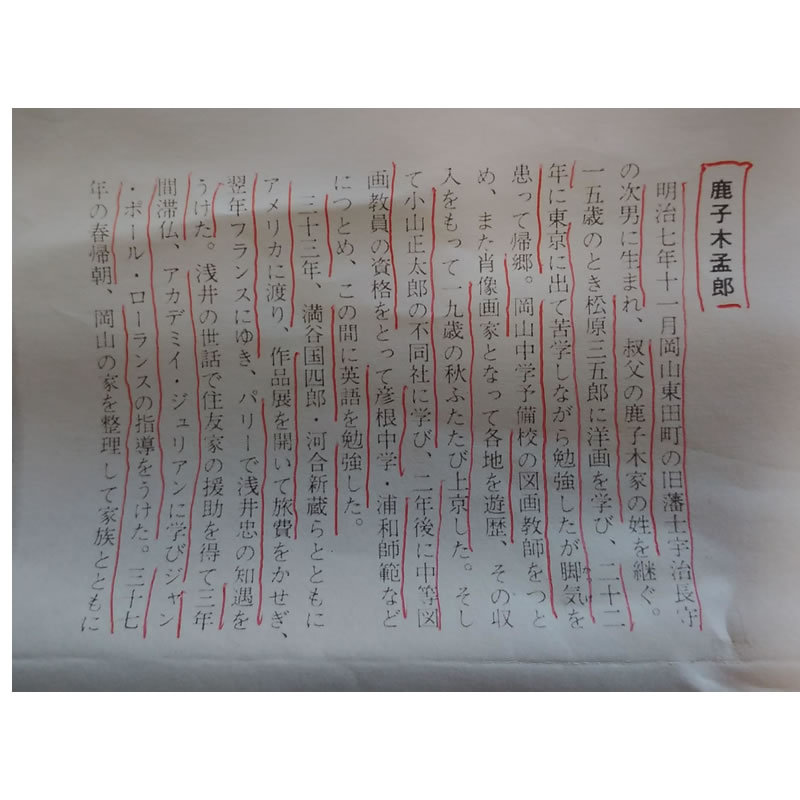 鹿子木孟郎
明治七年十一月岡山東田町の旧藩士宇治長守
の次男に生まれ、叔父の鹿子木家の姓を継ぐ。
一五歳のとき松原三五郎に洋画を学び、二十二
年に東京に出て苦学しながら勉強したが脚気を
患って帰郷。岡山中学予備校の図画教師をつと
め、また肖像画家となって各地を遊歴、その収
入をもって一九歳の秋ふたたび上京した。そし
て小山正太郎の不同社に学び、二年後に中等図
画教員の資格をとって彦根中学・浦和師範など
につとめ、この間に英語を勉強した。
三十三年、満谷国四郎・河合新蔵らとともに
アメリカに渡り、作品展を開いて旅費をかせぎ、
翌年フランスにゆき、パリーで浅井忠の知遇を
うけた。浅井の世話で住友家の援助を得て三年
間滞仏、アカデミイ・ジュリアンに学びジャン
・ポール・ローランスの指導をうけた。三十七
年の春帰朝、岡山の家を整理して家族とともに